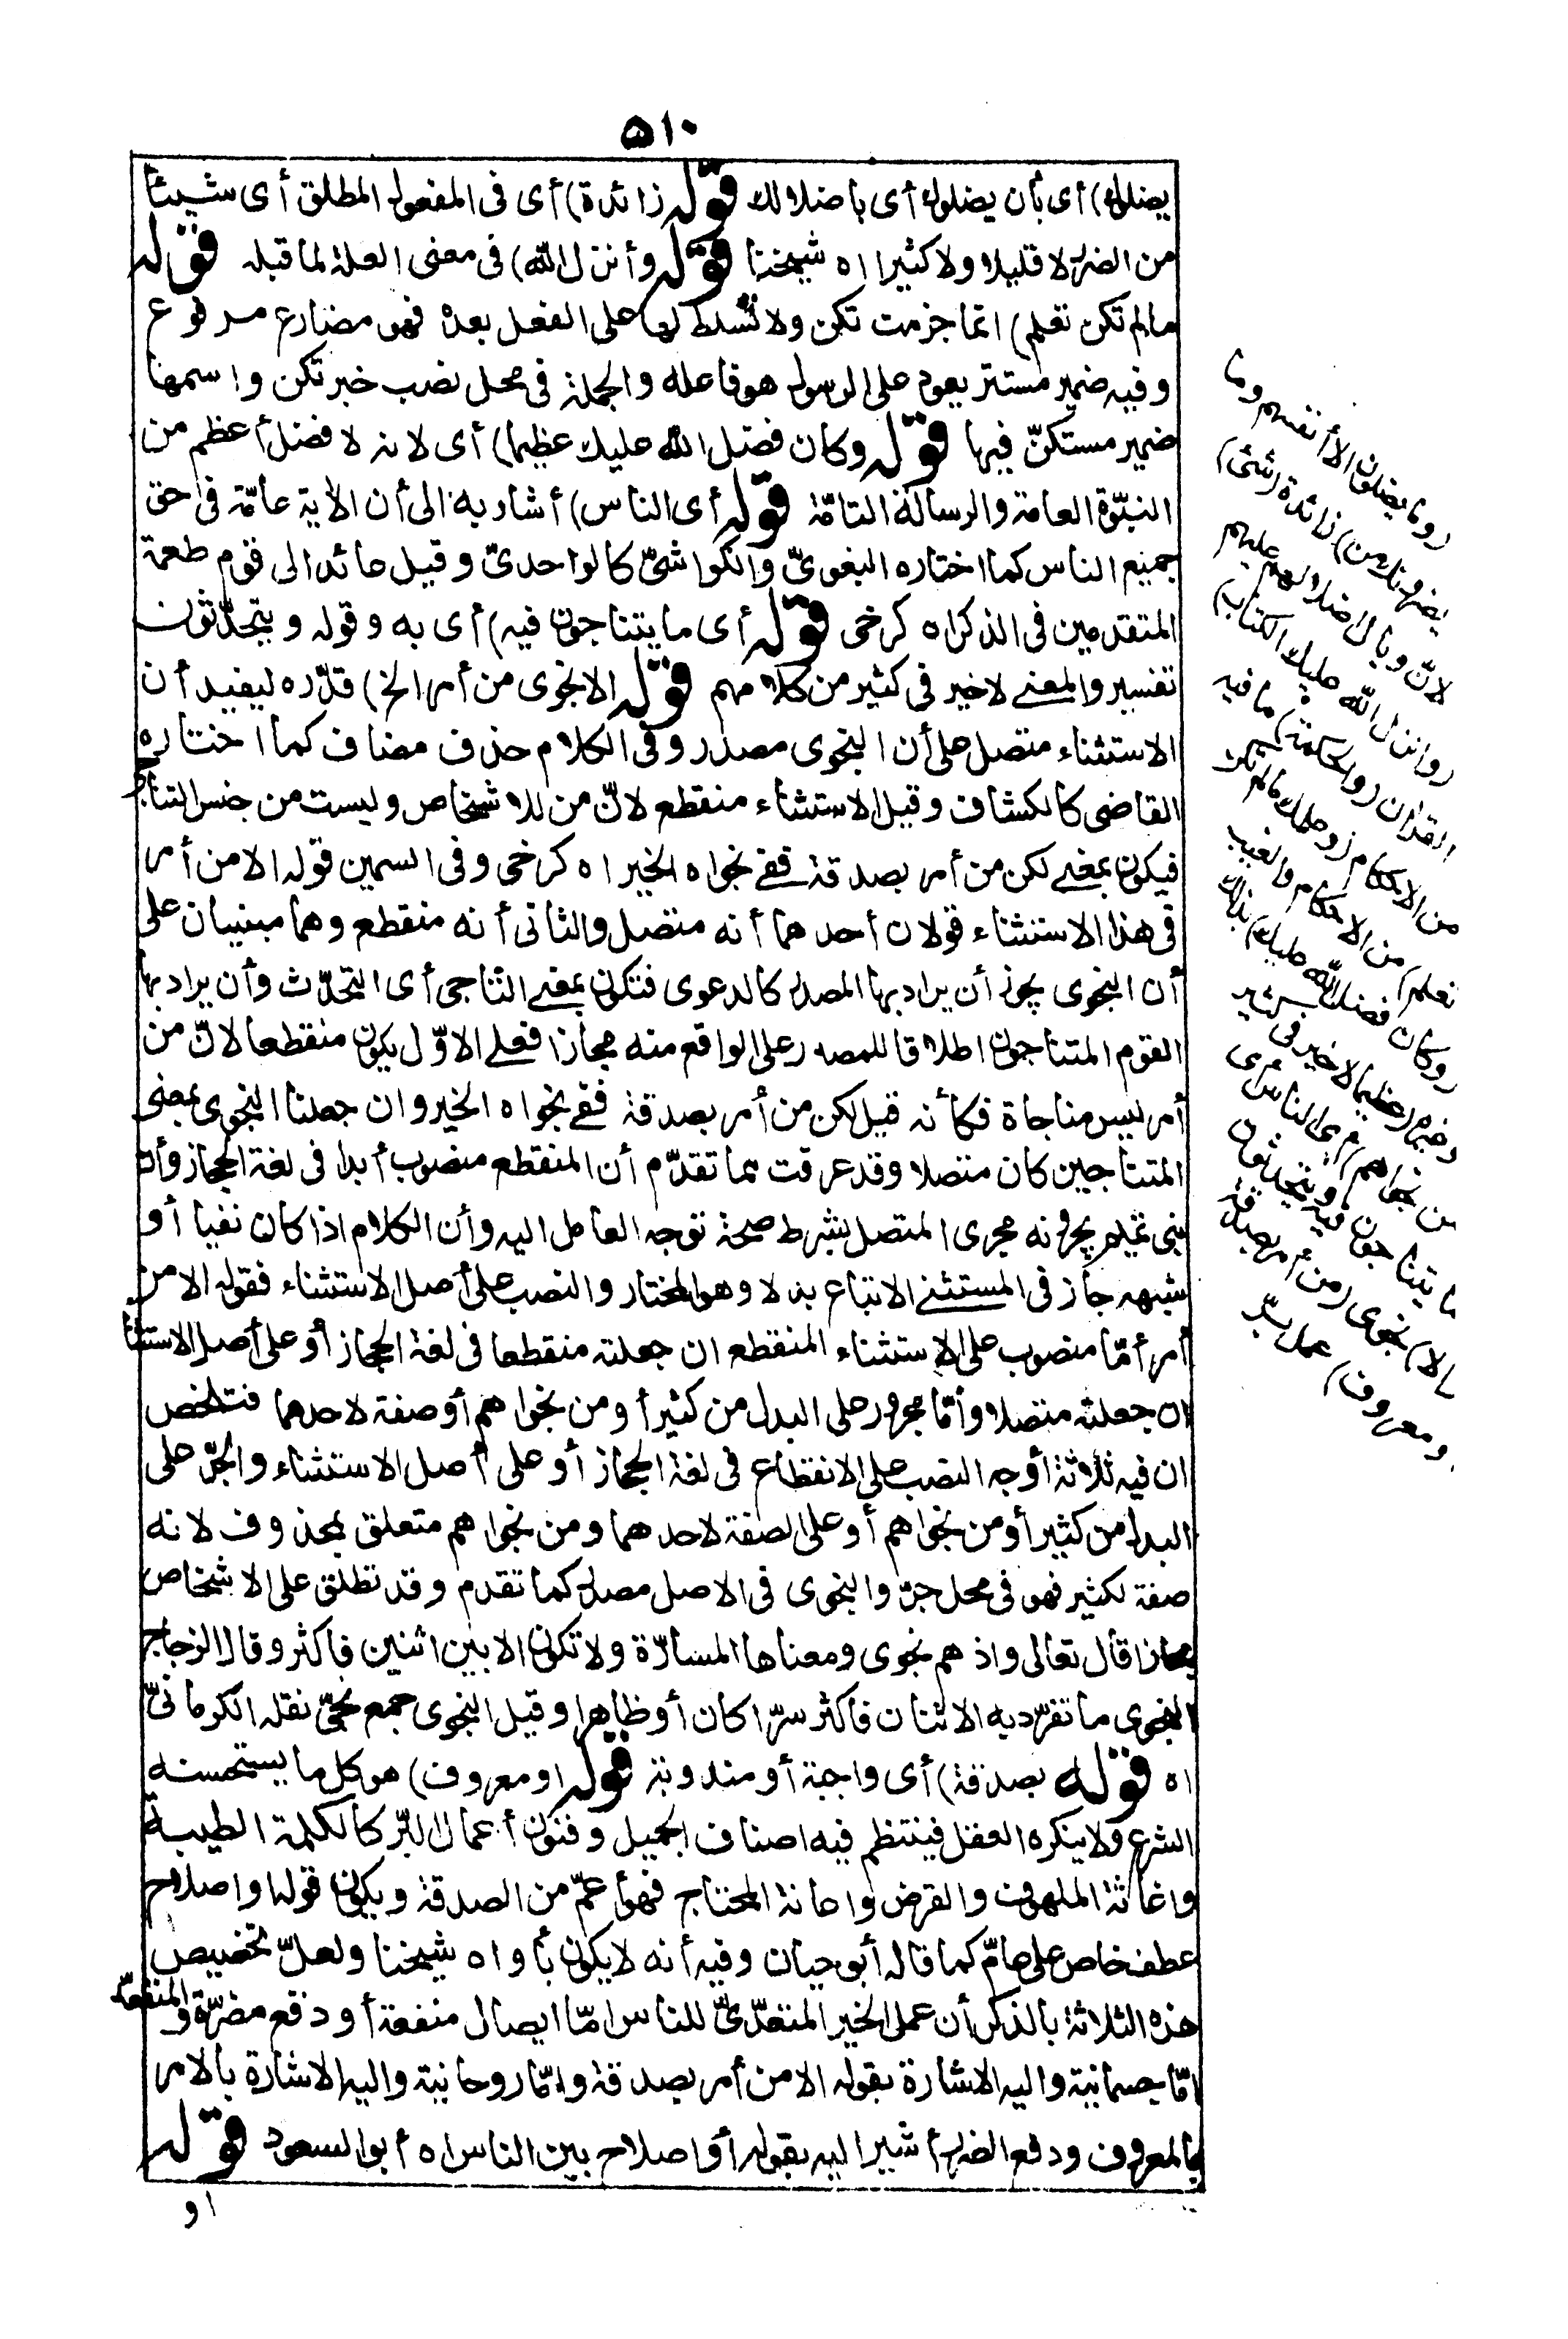 ٥١٠
يضلوك) أى بأن يضلوك أى باضلالك قوله زائدة) أى فى المفعول المطلق أى شيئا
من الضرر لا قليلا ولا كثيرا اه شيخنا قوله وأنزل الله) فى معنى العلة لما قبله قوله
مالم تكن تعلم) انما جزمت تكن ولا تسلط لها على الفعل بعده فهو مضارع مرفوع
وفيه ضمير مستتر يعود على الرسول هو فاعله والجملة فى محل نصب خبر تكن واسمها
ضمير مستكنّ فيها قوله وكان فضل الله عليك عظيما) أى لانه لا فضل أعظم من
النبوّة العامة والرسالة التامّة قوله أى الناس) أشار به الى أن الآية عامّة فى حق
جميع الناس كما اختاره البغوىّ والكواشىّ كالواحدىّ وقيل عائد الى قوم طعمة
المتقدمين فى الذكر اه كرخى قوله أى ما يتناجون فيه) أى به وقوله ويتحدّثون
تفسير والمعنى لا خير فى كثير من كلامهم قوله الا نجوى من أمر الخ) قدّره ليفيد أن
الاستثناء متصل على أن النجوى مصدر وفى الكلام حذف مضاف كما اختاره
القاضى كالكشاف وقيل الاستثناء منقطع لانّ من للاشخاص وليست من جنس التناجى
فيكون بمعنى لكن من أمر بصدقة ففى نجواه الخير اه كرخى وفى السمين قوله الا من أمر
فى هذا الاستثناء قولان أحدهما أنه متصل والثانى أنه منقطع وهما مبنيان على
أن النجوى يجوز أن يراد بها المصدر كالدعوى فتكون بمعنى التناجى أى التحدّث وأن يراد بها
القوم المتناجون اطلاقا للمصدر على الواقع منه مجازا فعلى الاوّل يكون منقطعا لانّ من
أمر ليس مناجاة فكأنه قيل لكن من أمر بصدقة ففى نجواه الخير وان جعلنا النجوى بمعنى
المتناجين كان متصلا وقد عرفت مما تقدّم أن المنقطع منصوب أبدا فى لغة الحجاز وأن
بنى تميم يجرونه مجرى المتصل بشرط صحة توجه العامل اليه وأن الكلام اذا كان نفيا أو
شبهه جاز فى المستثنى الاتباع بدلا وهو المختار والنصب على أصل الاستثناء فقوله الا من
أمر أمّا منصوب على الاستثناء المنقطع ان جعلته منقطعا فى لغة الحجاز أو على أصل الاستثنا
ان جعلته متصلا وأمّا مجرور على البدل من كثير أو من نجواهم أو صفة لاحدهما فتلخص
ان فيه ثلاثة أوجه النصب على الانقطاع فى لغة الحجاز أو على أصل الاستثناء والجرّ على
البدل من كثير أو من نجواهم أو على الصفة لاحدهما ومن نجواهم متعلق بمحذوف لانه
صفة لكثير فهو فى محل جرّ والنجوى فى الاصل مصدر كما تقدم وقد تطلق على الاشخاص
مجازا قال تعالى واذ هم نجوى ومعناها المسارّة ولا تكون الا بين اثنين فاكثر وقال الزجاج
النجوى ما تفرّد به الاثنان فاكثر سرّا كان أو ظاهرا وقيل النجوى جمع نجىّ نقله الكرمانىّ
اه قوله بصدقة) أى واجبة أو مندوبة قوله او معروف) هو كل ما يستحسنه
الشرع ولا ينكره العقل فينتظم فيه اصناف الجميل وفنون أعمال البرّ كالكلمة الطيبة
واغاثة الملهوف والقرض واعانة المحتاج فهو أعمّ من الصدقة ويكون قوله او اصلاح
عطف خاص على عامّ كما قاله أبو حيان وفيه أنه لا يكون بأو اه شيخنا ولعلّ تخصيص
هذه الثلاثة بالذكر أن عمل الخير المتعدّىّ للناس امّا ايصال منفعة أو دفع مضرّة والمنفعة
امّا جسمانية واليه الاشارة بقوله الا من أمر بصدقة وامّا روحانية واليه الاشارة بالامر
بالمعروف ودفع الضرر أشير اليه بقوله أو اصلاح بين الناس اه أبو السعود قوله
او
(وما يضلون الا أنفسهم وما
يضرونك من) زائدة (شئ)
لانّ وبال اضلالهم عليهم
(وانزل الله عليك الكتاب)
القرآن (والحكمة) ما فيه
من الاحكام (وعلمك مالم تكن
تعلم) من الاحكام والغيب
(وكان فضل الله عليك) بذلك
وغيره (عظيما لا خير فى كثير
من نجواهم) أى الناس أى
ما يتناجون فيه ويتحدثون
(الا) نجوى (من أمر بصدقة
او معروف) عمل برّ